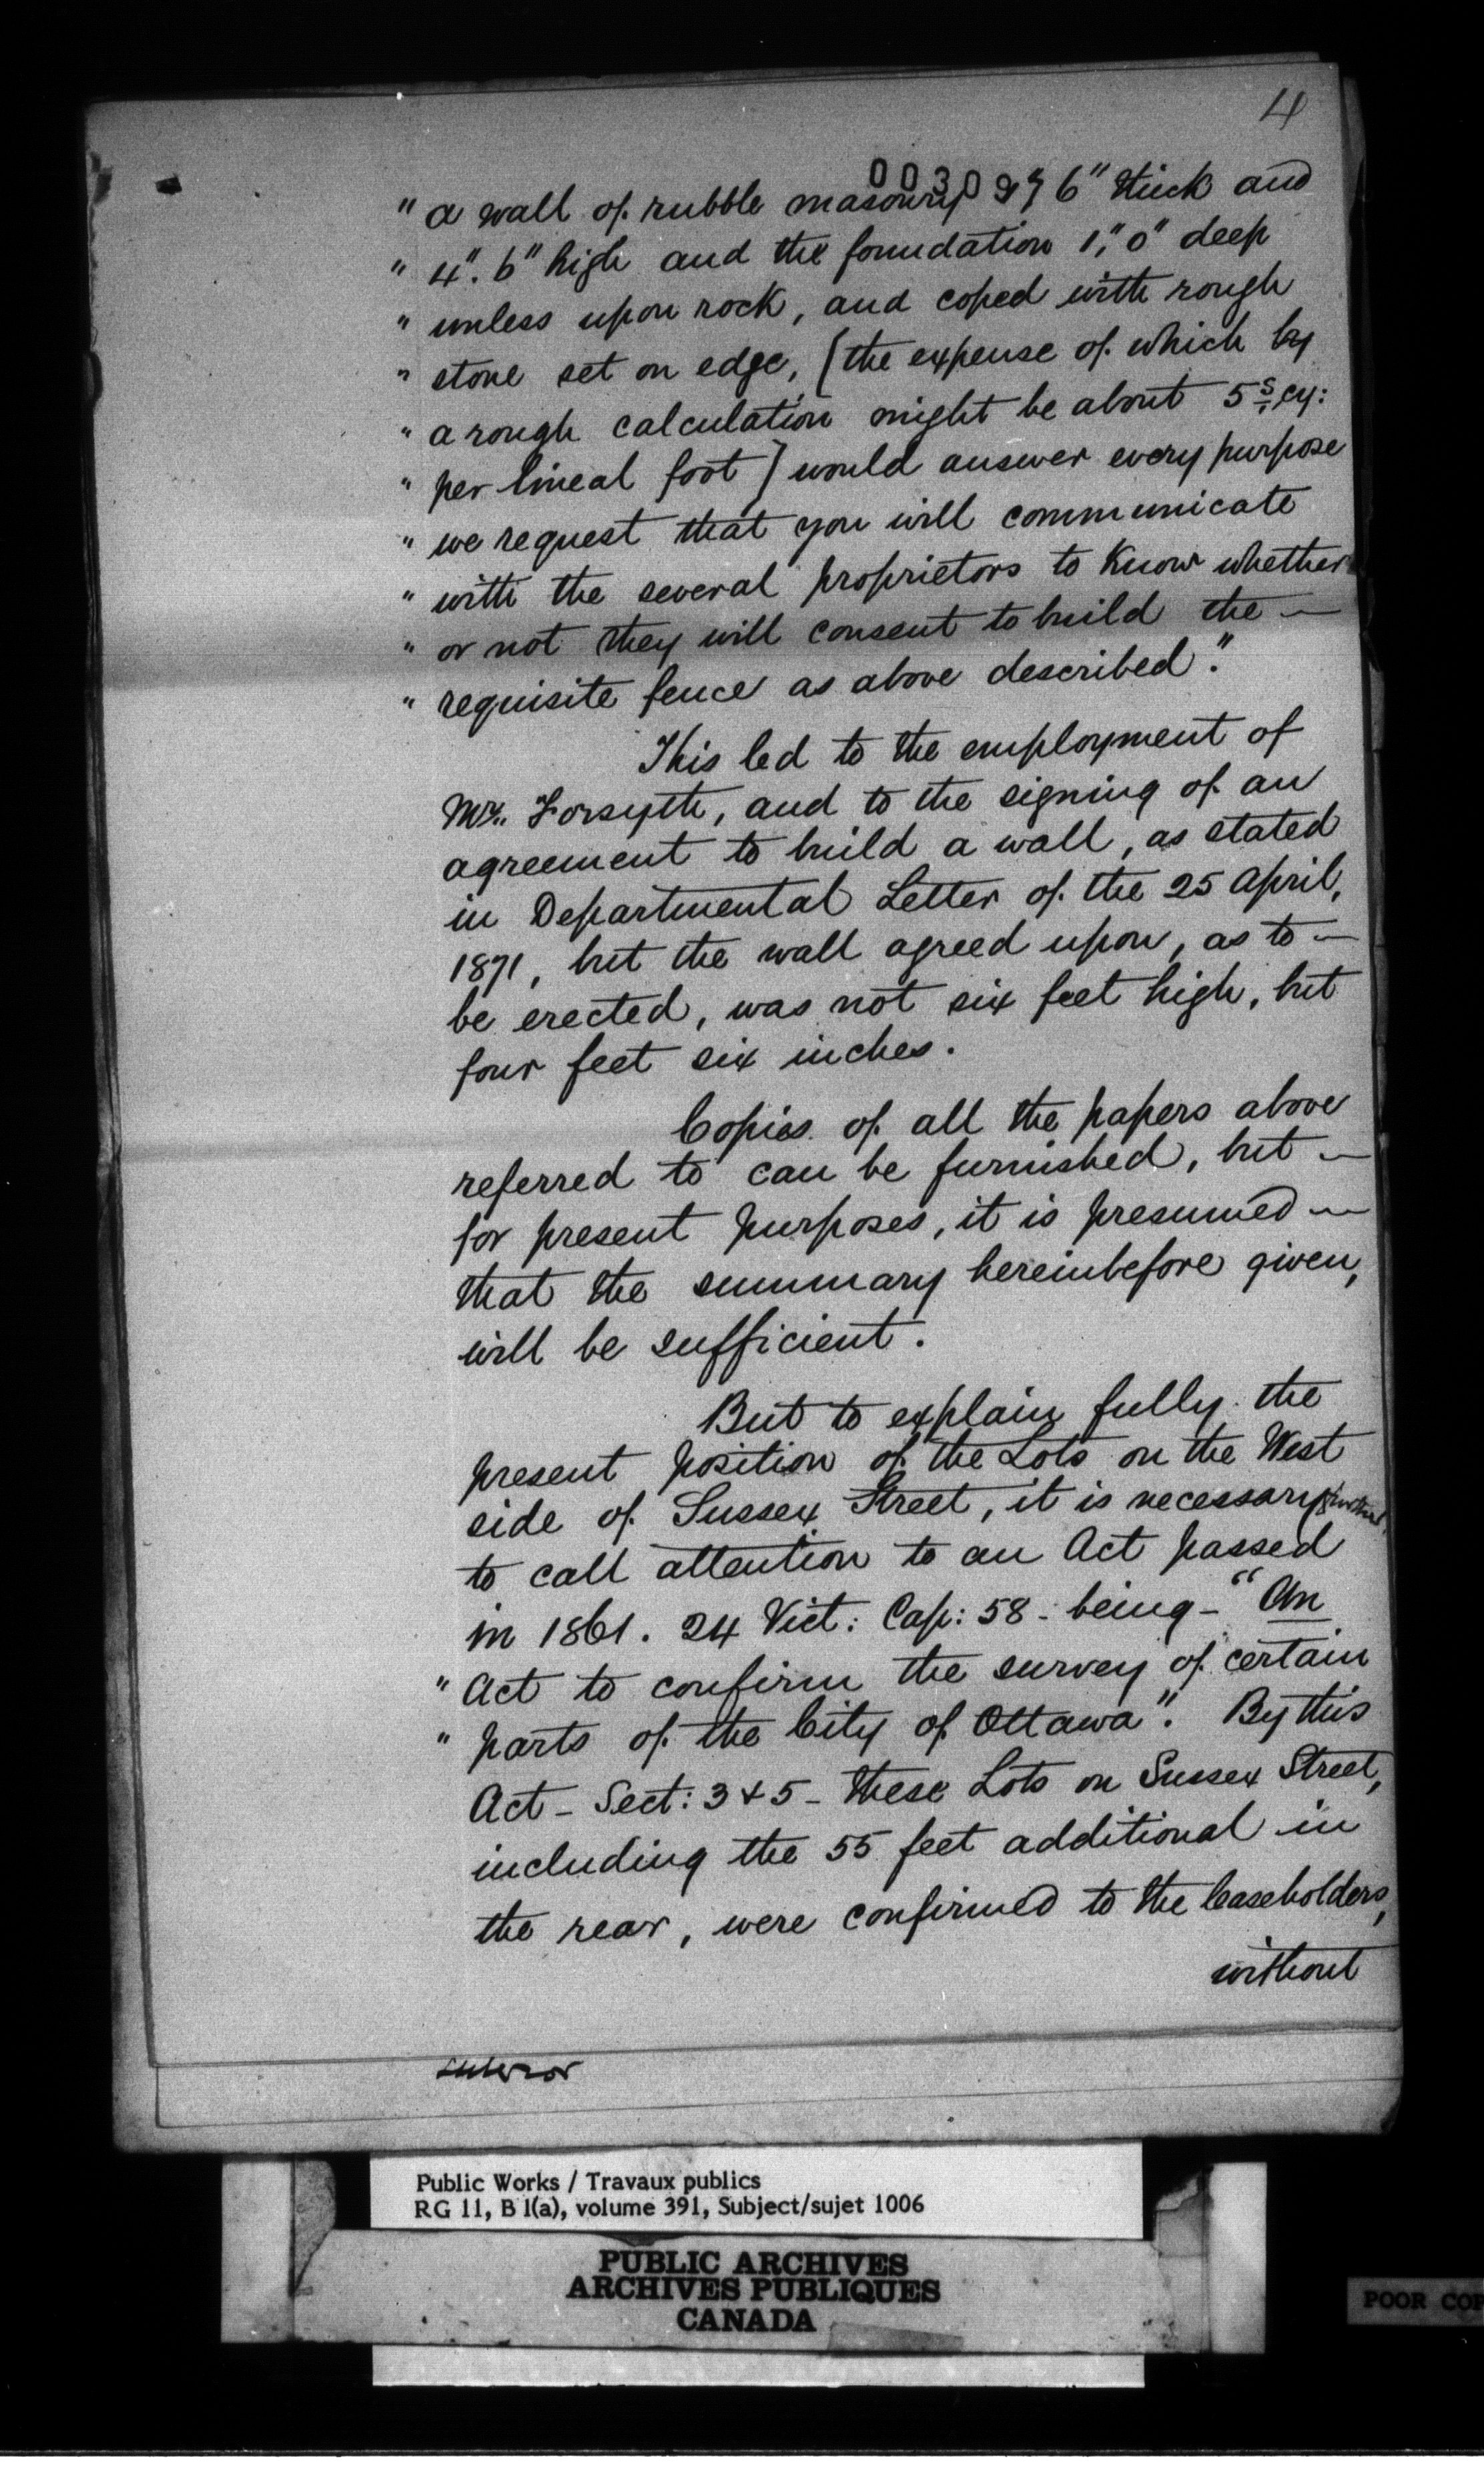 4
" a wall of rubble masonry 6" thick and
" 4". 6" high and the foundation 1," 0" deep
" unless upon rock, and coped with rough
" stone set on edge, (the expense of which by
" a rough calculation might be about 5s. cy:
" per lineal foot) would answer every purpose
" we request that you will communicate
" with the several proprietors to know whether
" or not they will consent to build the —
" requisite fence as above described."
This led to the employment of
Mr. Forsyth, and to the signing of an
agreement to build a wall, as stated
in Departmental Letter of the 25 April,
1871, but the wall agreed upon, as to —
be erected, was not six feet high, but
four feet six inches.
Copies of all the papers above
referred to can be furnished, but —
for present purposes, it is presumed —
that the summary hereinbefore given,
will be sufficient.
But to explain fully the
present position of the Lots on the West
side of Sussex Street, it is necessary
to call attention to an Act passed
in 1861. 24 Vict: Cap: 58 - being - "An
" Act to confirm the survey of certain
" parts of the City of Ottawa". By this
Act - Sect: 3 & 5 - these Lots on Sussex Street,
including the 55 feet additional in
the rear, were confirmed to the leaseholders,
without
Public Works / Travaux publics
RG 11, B 1(a), volume 391, Subject/sujet 1006
PUBLIC ARCHIVES
ARCHIVES PUBLIQUES
CANADA
POOR COP